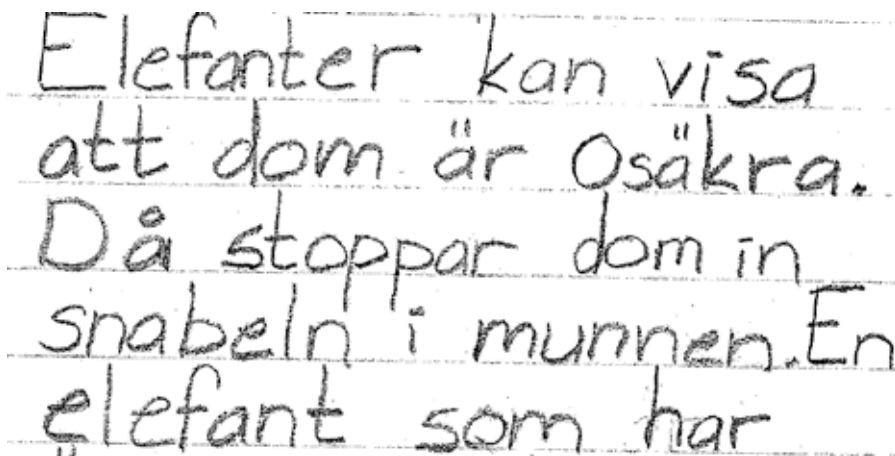 Elefanter kan visa
att dom är osäkra.
Då stoppar dom in
snabeln i munnen. En
elefant som har